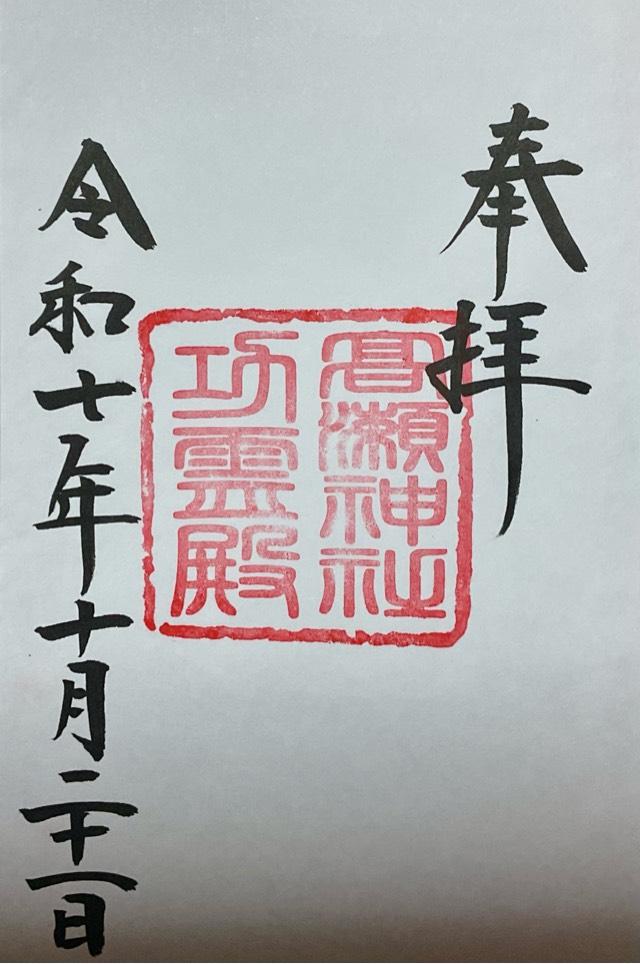 奉拝
髙瀬神社
功霊殿
令和七年十月二十一日